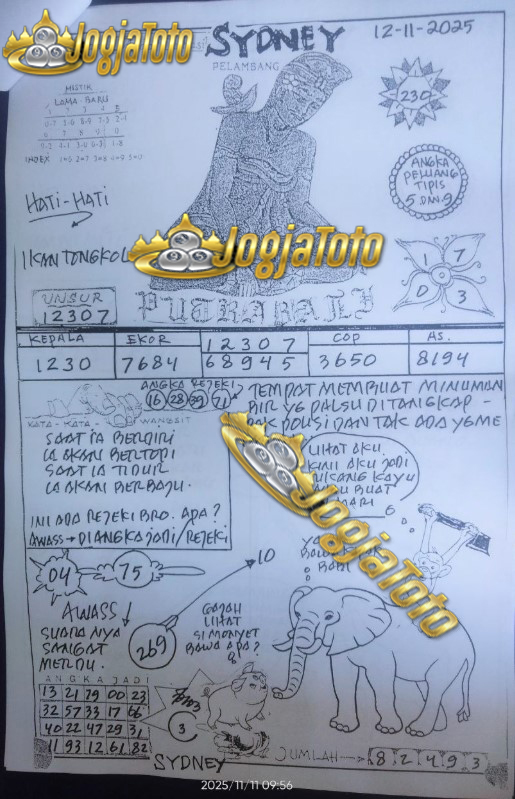 JogjaToto
SYDNEY
PELAMBANG
12-11-2025
MISTIK
LAMA BARU
INDEX 1=6 2=7 3=8 4=9 5=0
230
HATI-HATI
ANGKA
PELUANG
TIPIS
5 DAN 9
IKAN TONGKOL
JogjaToto
1 7
0 3
UNSUR
12307
PUTRA BALI
KEPALA EKOR 12307 COP AS.
1230 7684 68945 3650 8194
ANGKA REJEKI
16 28 39 71
KATA - KATA - WANGSIT
TEMPAT MEMBUAT MINUMAN
BIR YG PALSU DITANGKAP -
POLISI DAN TAK ADA YG ME
SAAT IA BERDIRI
IA AKAN BERTOPI
SAAT IA TIDUR
IA AKAN BERBAJU.
INI ADA REJEKI BRO. APA?
AWASS → DI ANGKA JADI / REJEKI
LIHAT AKU.
KINI AKU JADI
TUKANG KAYU
BUAT
JogjaToto
04 75
10
269
AWASS!
SUARANYA
SANGAT
MERDU.
GAJAH
LIHAT
SI MONYET
BAWA APA?
8
6
ANGKA JADI
13 21 79 00 23
32 57 33 17 66
40 22 47 29 31
11 93 12 61 82
3
SYDNEY
JUMLAH → 8 2 4 9 3
2025/11/11 09:56